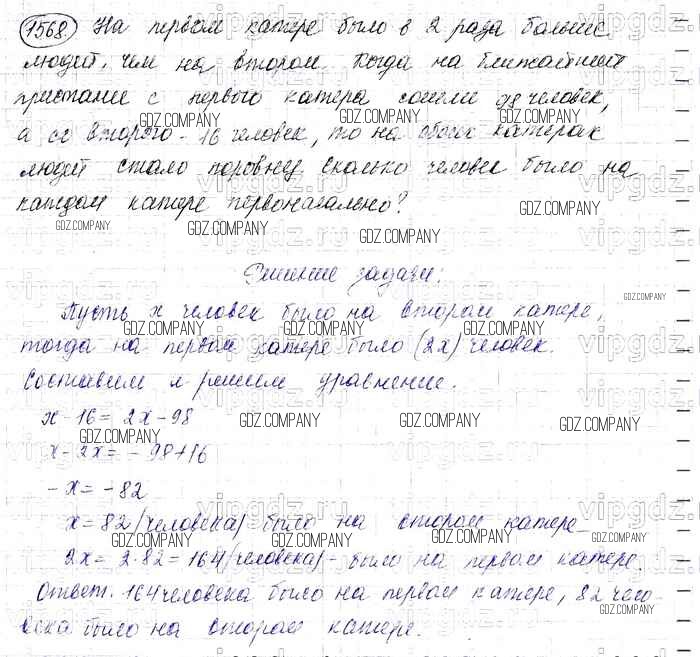 1568 На первом катере было в 2 раза больше
людей, чем на втором. Когда на ближайшей
пристани с первого катера сошли 98 человек,
а со второго - 16 человек, то на обоих катерах
людей стало поровну. Сколько человек было на
каждом катере первоначально?
Решение задачи:
Пусть x человек было на втором катере,
тогда на первом катере было (2x) человек.
Составим и решим уравнение.
x - 16 = 2x - 98
x - 2x = - 98 + 16
- x = - 82
x = 82 (человека) было на втором катере
2x = 2 · 82 = 164 (человека) - было на первом катере.
Ответ. 164 человека было на первом катере, 82 чело-
века было на втором катере.
GDZ.COMPANY
vipgdz.ru